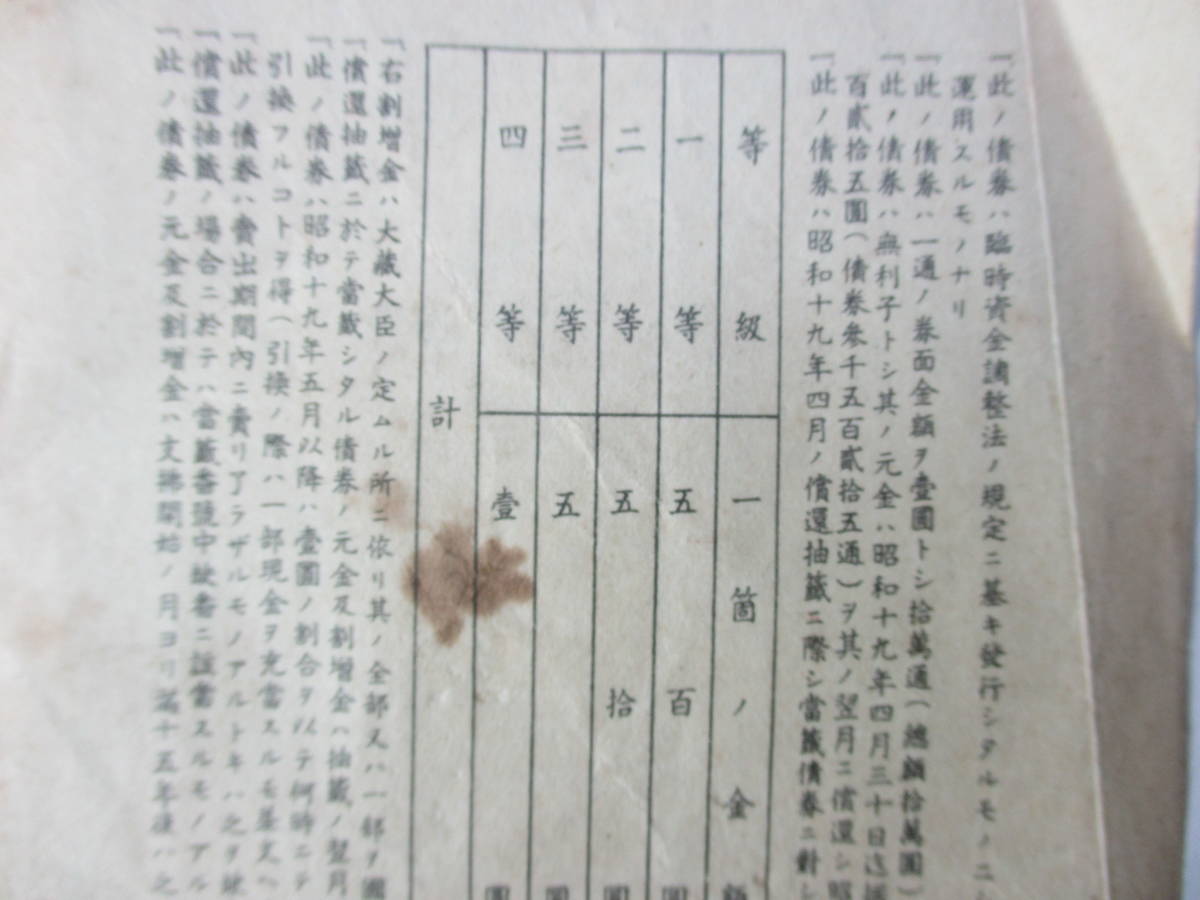 一此ノ債券ハ臨時資金調整法ノ規定ニ基キ發行シタルモノニシ
運用スルモノナリ
一此ノ債券ハ一通ノ券面金額ヲ壹圓トシ拾萬通(總額拾萬圓)
一此ノ債券ハ無利子トシ其ノ元金ハ昭和十九年四月三十日迄据
百貳拾五圓(債券參千五百貳拾五通)ヲ其ノ翌月ニ償還シ昭
一此ノ債券ハ昭和十九年四月ノ償還抽籤ニ際シ當籤債券ニ對シ
等級 一箇ノ金額
一等 五百圓
二等 五拾圓
三等 五圓
四等 壹圓
計
一右割增金ハ大藏大臣ノ定ムル所ニ依リ其ノ全部又ハ一部ヲ國
一償還抽籤ニ於テ當籤シタル債券ノ元金及割增金ハ抽籤ノ翌月
一此ノ債券ハ昭和十九年五月以降ハ壹圓ノ割合ヲ以テ何時ニテ
引換フルコトヲ得(引換ノ際ハ一部現金ヲ充當スルモ差支ヘ
一此ノ債券ハ賣出期間內ニ賣リ了ラザルモノアルトキハ之ヲ
一償還抽籤ノ場合ニ於テハ當籤番號中缺番ニ該當スルモノアル
一此ノ債券ノ元金及割增金ハ支拂開始ノ月ヨリ滿十五年後ハ之